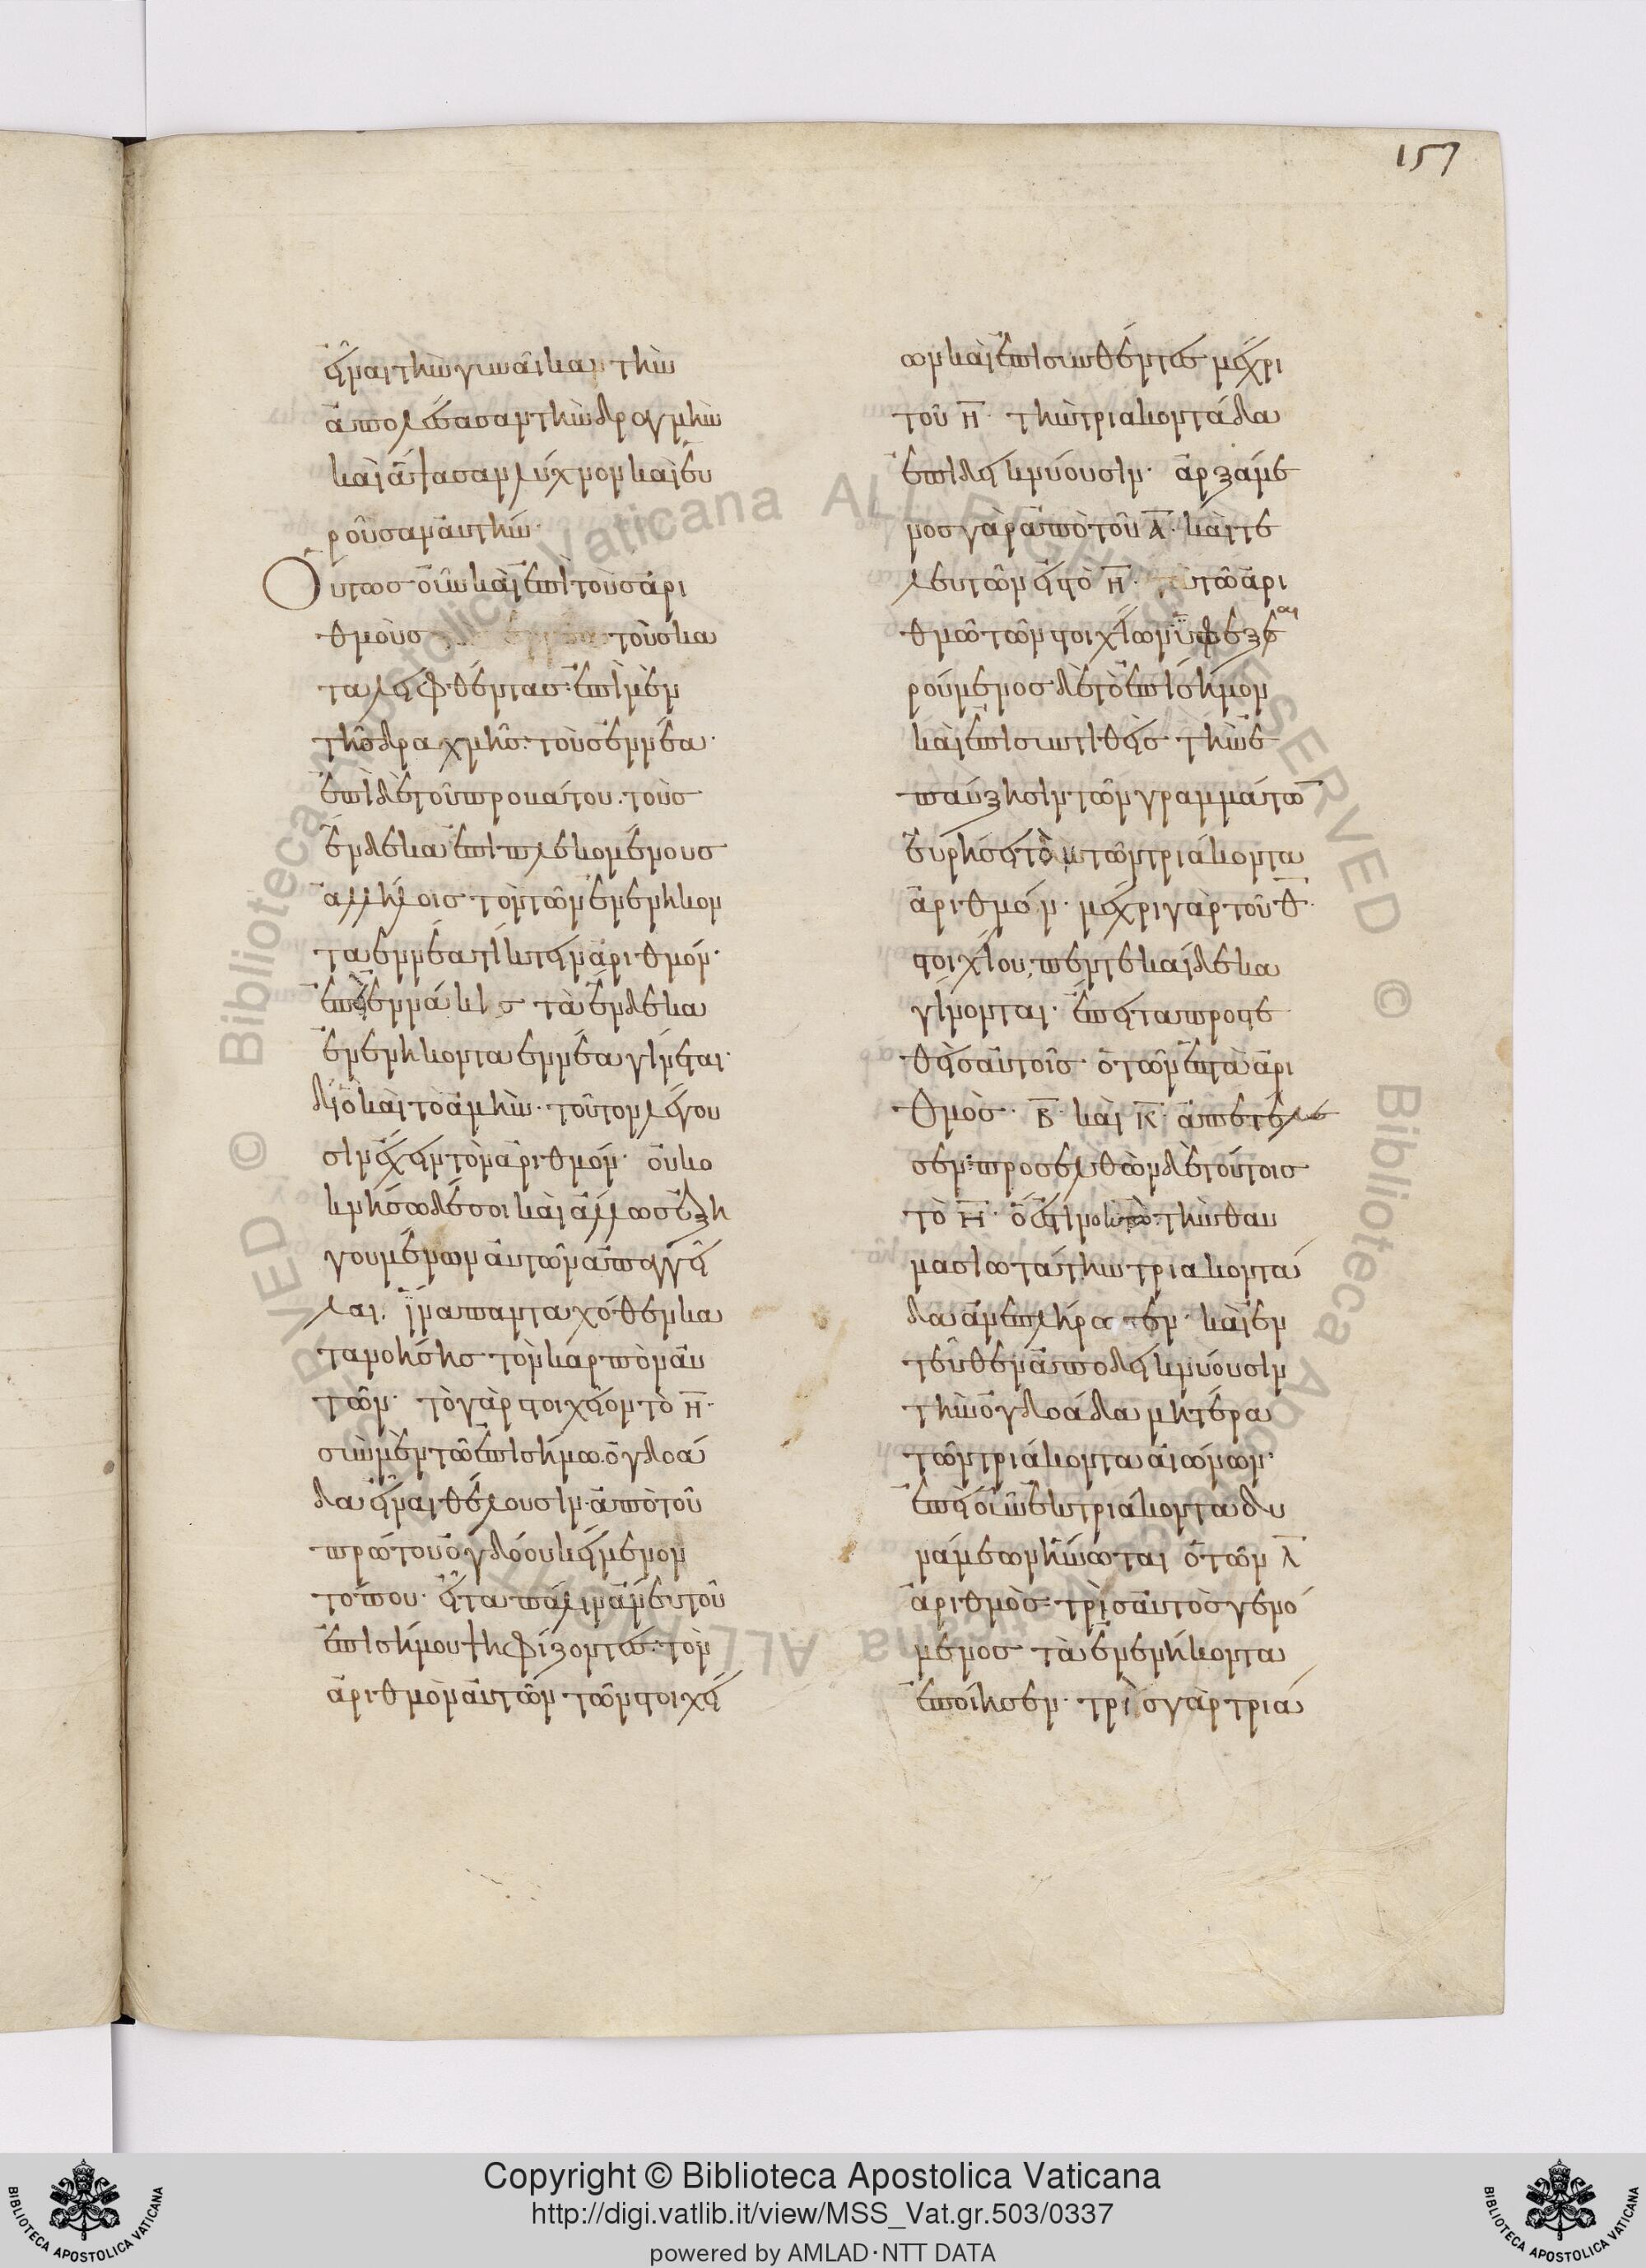 157
εἶναι τὴν γυναῖκαν τὴν
ἀπολέσασαν τὴν δραγμὴν
καὶ ἅψασαν λύχνον καὶ εὑ
ροῦσαν αὐτήν·
Οὕτως οὖν καὶ ἐπὶ τοὺς ἀρι
θμοὺς τοὺς κα
ταλειφθέντας· ἐπὶ μὲν
τῆς δραχμῆς· τοὺς ἐννέα·
ἐπὶ δὲ τοῦ προβάτου· τοὺς
ἕνδεκα ἐπιπλεκομένους
ἀλλήλοις τὸν τῶν ἐνενήκον
τα ἐννέα τίκτειν ἀριθμόν·
ἐπεὶ ἐννάκις τὰ ἕνδεκα
ἐνενήκοντα ἐννέα γίνεται·
διὸ καὶ τὸ ἀμὴν· τοῦτον λέγου
σιν ἔχειν τὸν ἀριθμόν· οὐκ ὀ
κνήσω δέ σοι καὶ ἄλλως ἐξη
γουμένων αὐτῶν ἀπαγγεῖ
λαι· ἵνα πανταχόθεν κα
τανοήσῃς τὸν καρπὸν αὐ
τῶν· τὸ γὰρ στοιχεῖον τὸ Η·
σὺν μὲν τῶ ἐπισήμω ὀγδοά
δα εἶναι θέλουσιν· ἀπὸ τοῦ
πρώτου ὀγδόου κείμενον
τόπου· εἶτα πάλιν ἄνευ τοῦ
ἐπισήμου ψηφίζοντες· τὸν
ἀριθμὸν αὐτῶν τῶν στοιχεί
ων καὶ ἐπισυνθέντες μέχρι
τοῦ Η· τὴν τριακοντάδα
ἐπιδεικνύουσιν· ἀρξάμε
νος γὰρ ἀπὸ τοῦ Α· καὶ τε
λευτῶν εἰς τὸ Η· τῶ ἀρι
θμῶ τῶν στοιχείων ὑπεξε
ρούμενος δὲ τὸ ἐπίσημον
καὶ ἐπισυντιθεὶς τὴν ἐ
παύξησιν τῶν γραμμάτω
εὑρήσει τὸν τῶν τριάκοντα
ἀριθμόν· μέχρι γὰρ τοῦ Θ·
στοιχείου, πεντεκαίδεκα
γίνονται· ἔπειτα προστε
θεὶς αὐτοῖς ὁ τῶν ἑπτὰ ἀρι
θμὸς· Β· καὶ Κ· ἀπετέλε
σεν· προσελθὼν δὲ τούτοις
τὸ Η· ὅ ἐστιν ὀκτὼ· τὴν θαυ
μασιωτάτην τριακοντά
δα ἀνεπλήρωσεν· καὶ ἐν
τεῦθεν ἀποδεικνύουσιν
τὴν ὀγδοάδα μητέρα
τῶν τριάκοντα αἰώνων·
ἐπεὶ οὖν ἐκ τριάκοντα δυ
νάμεων ἥνωται ὁ τῶν Λ
ἀριθμὸς· τρὶς αὐτὸς γενό
μενος τὰ ἐνενήκοντα
ἐποίησεν· τρὶς γὰρ τριά
Copyright © Biblioteca Apostolica Vaticana
http://digi.vatlib.it/view/MSS_Vat.gr.503/0337
powered by AMLAD·NTT DATA